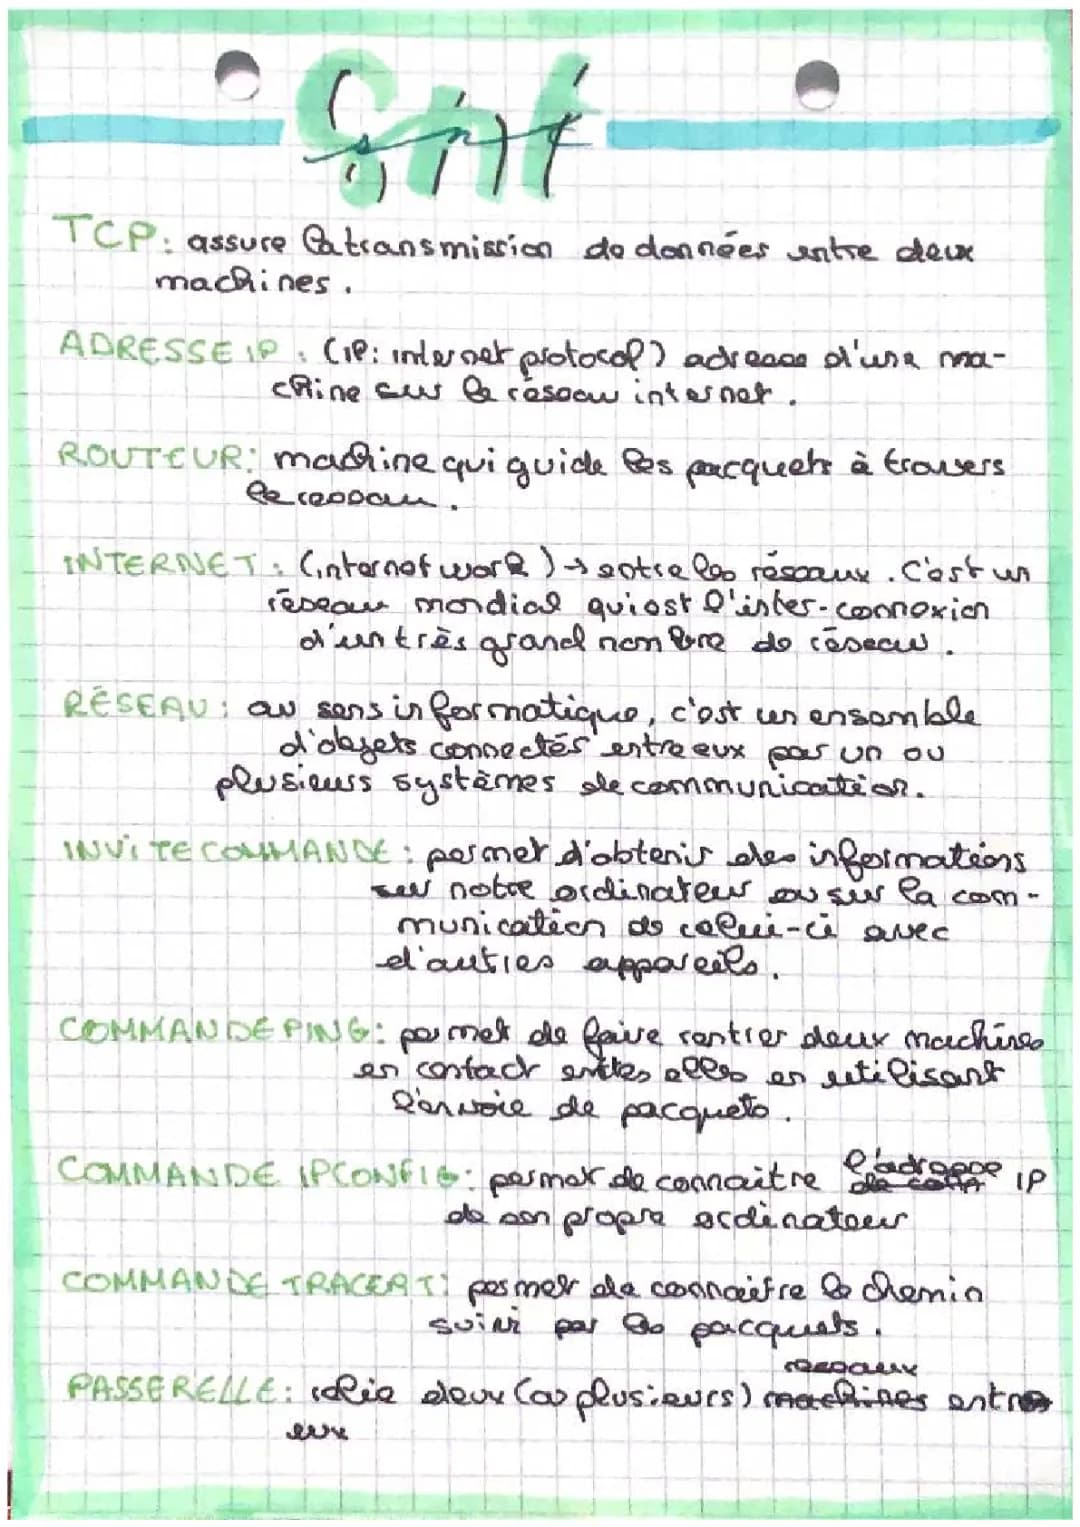 Snt
TCP: assure la transmission de données entre deux
machines.
ADRESSE IP : (IP: internet protocol) adresse d'une ma-
chine sur le réseau internet.
ROUTEUR: machine qui guide les pacquets à travers
le reseau.
INTERNET : (internetwork) → entre les réseaux. C'est un
réseau mondial qui est l'inter-connexion
d'un très grand nombre de réseau.
RÉSEAU : au sens informatique, c'est un ensemble
d'objets connectés entre eux par un ou
plusieurs systèmes de communication.
INVITE COMMANDE : permet d'obtenir des informations
sur notre ordinateur ou sur la com-
munication de celui-ci avec
d'autres appareils.
COMMANDE PING: permet de faire rentrer deux machines
en contact entres elles en utilisant
l'envoie de pacquets.
COMMANDE IPCONFIG: permet de connaitre l'adresse IP
de son propre ordinateur
COMMANDE TRACERT: permet de connaitre le chemin
suivi par les pacquets.
reseaux
PASSERELLE: relie deux (ou plusieurs) machines entre
eux